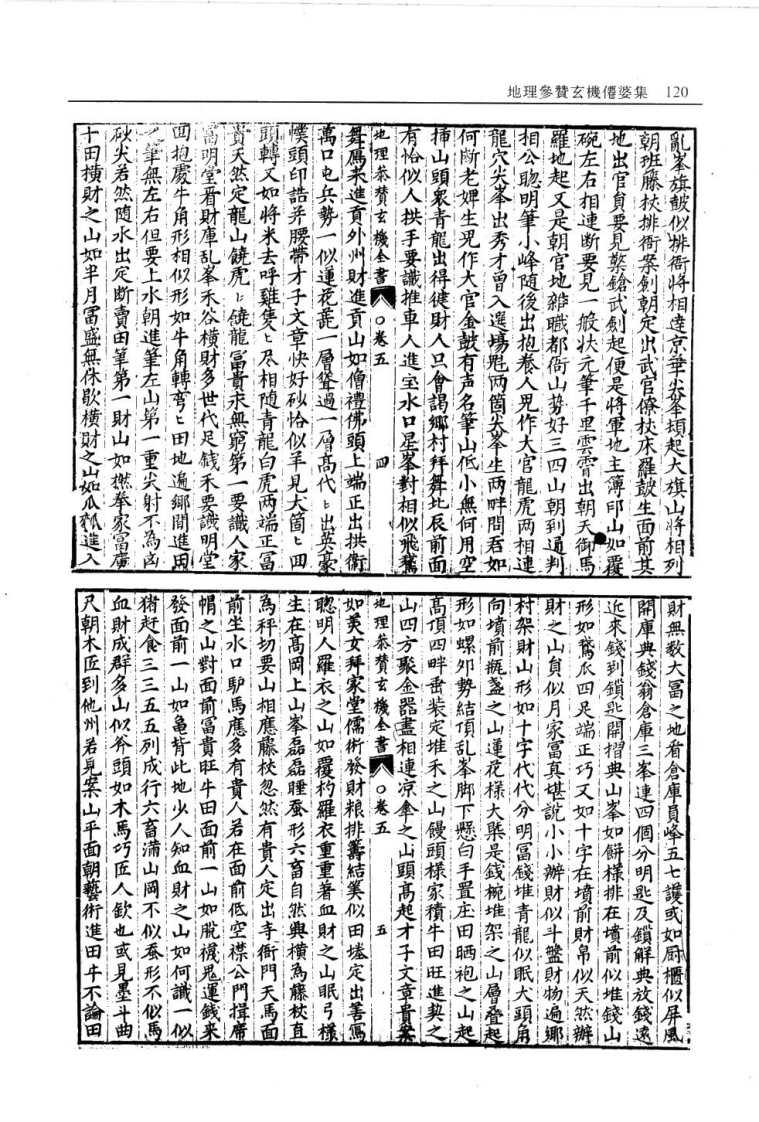 地理參贊玄機僊婆集 120
亂峯旗皷似排衙將相達京華尖峯頭起大旗山將相列
朝班藤杖排衙案劍朝定出武官僚杖床羅皷生面前其
地出官員要見槳鎗武劍起便是將軍地主薄印山如覆
碗左右相連断要見一般状元筆千里雲霄出朝天御馬
羅地起又是朝官地雜職都衙山勢好三四山朝到通判
相公聰明筆小峰随後出抱養人児作大官龍虎两相連
龍穴尖峯出秀才曾入選場魁两箇尖峯生两畔問君如
何断老婢生児作大官金皷有声名筆山低小無何用空
挿山頭衆青龍出得徤財人只會謁鄉村拜舞北辰前面
有恰似人拱手要識推車人進宝水口星峯對相似飛鵞
地理叅贊玄機全書 ○卷五 四
舞鳫来進貢外州財進貢山如僧禮佛頭上端正出拱衛
萬口屯兵勢一似蓮花蓗一層聳過一層髙代〻出英豪
幞頭印誥并腰帶才子文章快好砂恰似羊見大箇〻回
頭轉又如將米去呼雞隻〻尽相随青龍白虎两端正富
貴天然定龍山饒虎〻饒龍冨貴永無窮第一要識人家
冨明堂看財庫乱峯禾谷横財多世代足銭禾要識明堂
面抱處牛角形相似形如牛角轉弯〻田地遍鄉間進田
之筆無左右但要上水朝進筆左山第一重尖射不為凶
砂尖若然随水出定断賣田筆第一財山如撚拳家冨廣
十田横財之山如半月冨盛無休歇横財之山如瓜瓠進入
財無数大冨之地看倉庫員峰五七護或如厨櫃似屏風
開庫典錢翁倉庫三峯連四個分明匙及鎖解典放錢遠
近來錢到鎖匙開摺典山峯如餅様排在墳前似堆錢山
形如鵞爪四足端正巧又如十字在墳前財帛似天然辦
財之山員似月家冨真堪説小小辦財似斗盤財物遍鄉
村架財山形如十字代代分明冨錢堆青龍似眠犬頭角
向墳前瓶盞之山蓮花樣大槩是錢椀堆架之山層疊起
形如螺夘勢結頂乱峯脚下懸白手置庄田晒袍之山起
髙頂四畔垂装定堆禾之山饅頭樣家積牛田旺進契之
山四方聚金器盡相連凉傘之山頭髙起才子文章貴案
地理叅贊玄機全書 ○卷五 五
如美女拜家堂儒術發財粮排籌結筭似田墭定出善寫
聰明人羅衣之山如覆杓羅衣重重著血財之山眠弓樣
生在髙岡上山峯磊磊睡蚕形六畜自然興横為藤杖直
為秤切要山相應藤杖忽然有貴人定出寺衙門天馬面
前坐水口馿馬應多有貴人若在面前低空襟公門揖席
帽之山對面前冨貴旺牛田面前一山如脱襪鬼運錢来
發面前一山如龜背此地少人知血財之山如何識一似
猪赶食三三五五列成行六畜滿山岡不似蚕形不似馬
血財成群多山似斧頭如木馬巧匠人欽也或見墨斗曲
尺朝木匠到他州若見案山平面朝藝術進田牛不論田